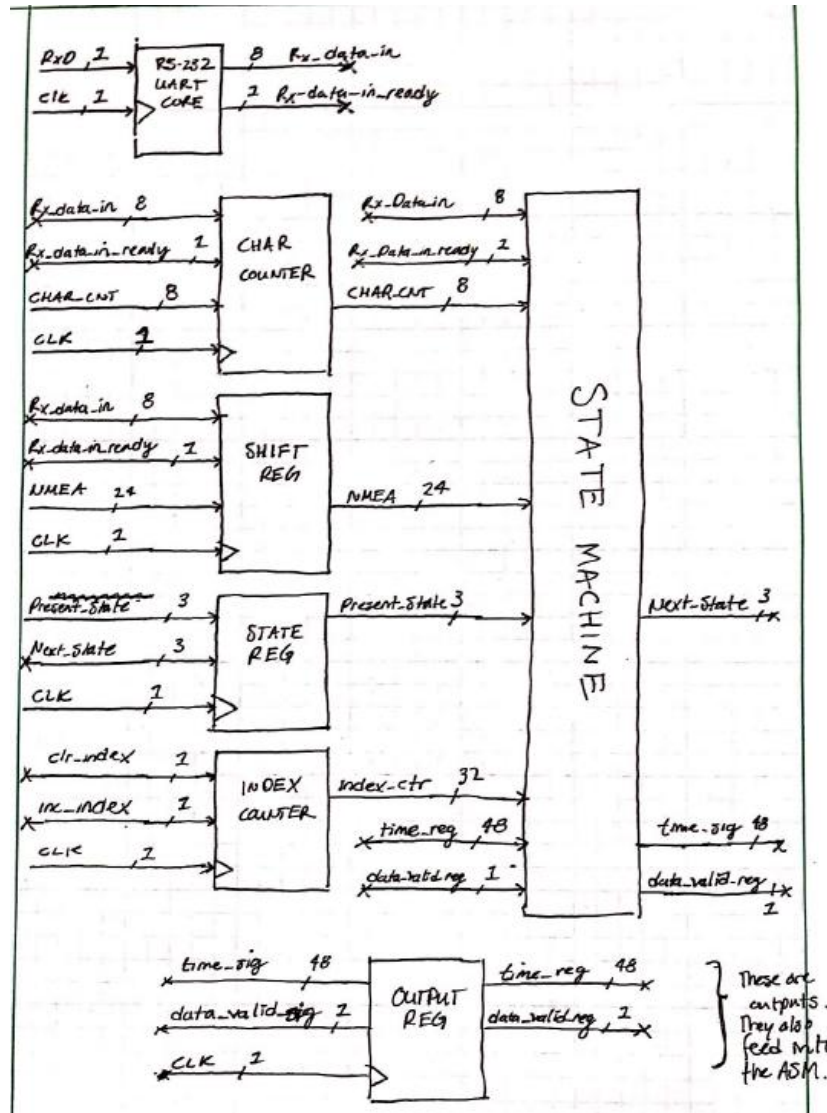 RxD 1
Clk 1
RS-232
UART
CORE
8 Rx_data_in
1 Rx_data_in_ready
Rx_data_in 8
Rx_data_in_ready 1
CHAR_CNT 8
CLK 1
CHAR
COUNTER
Rx_Data_in 8
Rx_Data_in_ready 1
CHAR_CNT 8
Rx_data_in 8
Rx_data_in_ready 1
NMEA 24
CLK 1
SHIFT
REG
NMEA 24
Present_State 3
Next_State 3
CLK 1
STATE
REG
Present_State 3
clr_index 1
inc_index 1
CLK 1
INDEX
COUNTER
index_ctr 32
time_reg 48
data_valid_reg 1
STATE MACHINE
Next_State 3
time_sig 48
data_valid_reg 1
time_sig 48
data_valid_sig 1
CLK 1
OUTPUT
REG
time_reg 48
data_valid_reg 1
These are
outputs.
They also
feed into
the ASM.